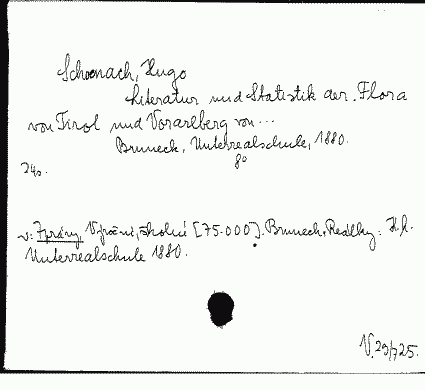 Schoenach, Hugo
Literatur und Statistik der Flora
von Tirol und Vorarlberg von ...
Bruneck, Unterrealschule, 1880.
8o
24s.
v: Zprávy, Výroční, školní [75.000]. Bruneck, Realky:
Unterrealschule 1880.
V.29/725.